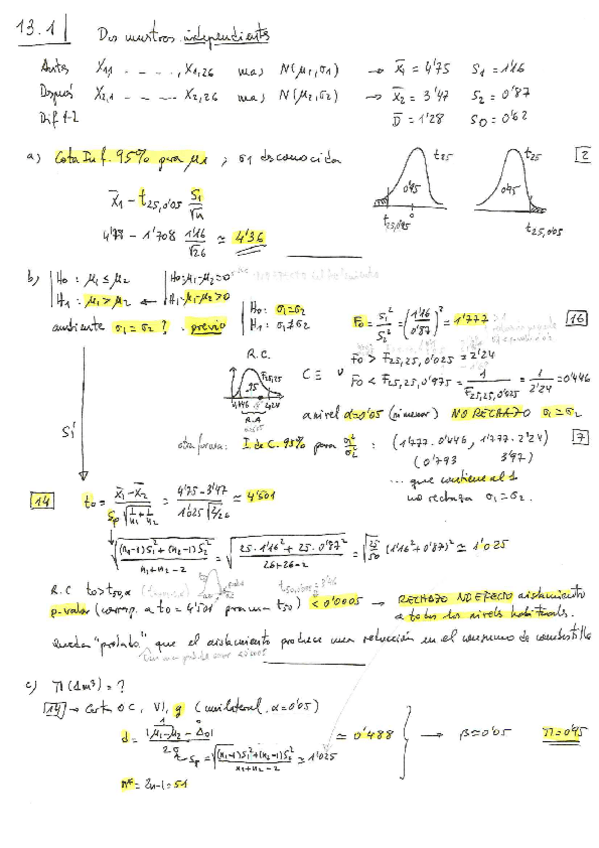 13.1 Dos muestras independientes
Antes X₁₁ - . . - . . , X₁,₂₆ mas N(μ₁,σ₁) → x̄₁ = 4'75 S₁ = 1'16
Después X₂,₁ . . - . . - X₂,₂₆ mas N(μ₂,σ₂) → x̄₂ = 3'47 S₂ = 0'87
Dif 1-2 D̄ = 1'28 S_D = 0'62
a) Cota Inf. 95% para μ₁ ; σ₁ desconocida t₂₅ t₂₅ 2
x̄₁ - t₂₅,₀'₀₅ S₁/√n 0'95 0'95
t₂₅,₀'₉₅ 0 t₂₅,₀'₀₅
4'78 - 1'708 1'16/√26 ≃ 4'36
b) H₀ : μ₁ ≤ μ₂ H₀: μ₁-μ₂=0
H₁ : μ₁ > μ₂ ← H₁: μ₁-μ₂>0
ambiente σ₁ = σ₂ ? . previo H₀: σ₁=σ₂ H₁: σ₁≠σ₂ F₀ = S₁²/S₂² = (1'16/0'87)² = 1'777 16
R.C. F₂₅,₂₅ .95 0'446 2,24 R.A C ≡ F₀ > F₂₅,₂₅,₀'₀₂₅ = 2'24
∪ F₀ < F₂₅,₂₅,₀'₉₇₅ = 1/F₂₅,₂₅,₀'₀₂₅ = 1/2'24 = 0'446
a nivel α=0'05 (ni menor) NO RECHAZO σ₁=σ₂
Sí
otra forma: I de C. 95% para σ₁²/σ₂² : (1'777 · 0'446, 1'777 · 2'24) 7
(0'793 3'97)
... que contiene al 1
no rechaza σ₁=σ₂.
14 t₀ = x̄₁-x̄₂ / Sp √(1/n₁+1/n₂) = 4'75-3'47 / 1'025 √(2/26) ≃ 4'501
√((n₁-1)S₁²+(n₂-1)S₂² / n₁+n₂-2) = √(25·1'16²+25·0'87² / 26+26-2) = √(25/50 (1'16²+0'87²)) ≃ 1'025
R.C t₀>t₅₀,α
p-valor (corresp. a t₀ = 4'501 para una t₅₀) < 0'0005 → RECHAZO NO EFECTO aislamiento
a todos los niveles habituales.
Queda "probado" que el aislamiento produce una reducción en el consumo de combustible
c) Π(1m³) = ?
14 → Curva OC, VI, g (unilateral, α=0'05)
d = |μ₁-μ₂-Δ₀| / 2σ ≃ 0'488 → β≃0'05 Π=0'95
Sp = √((n₁-1)S₁²+(n₂-1)S₂² / n₁+n₂-2) ≃ 1'025
n* = 2n-1 = 51